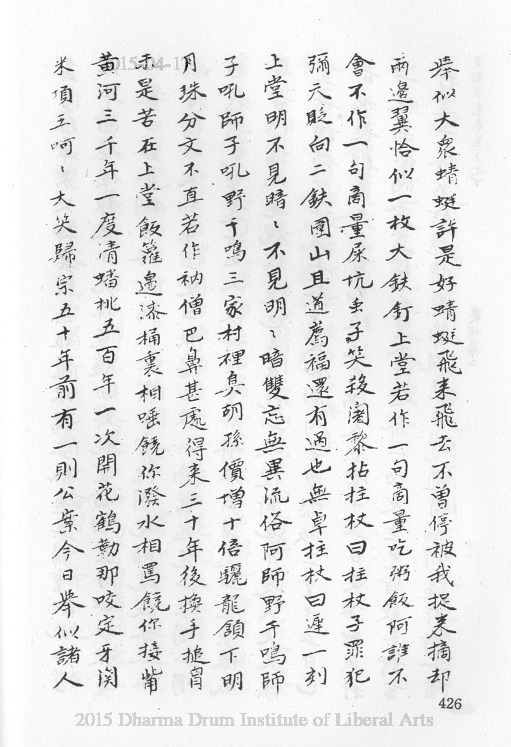 舉似大衆蜻蜓許是好蜻蜓飛来飛去不曾停被我捉来摘却
兩邊翼恰似一枚大鉄釘上堂若作一句商量吃粥飯阿誰不
會不作一句商量屎坑虫子笑殺闍黎拈拄杖曰拄杖子罪犯
彌天貶向二鉄圍山且道薦福還有過也無卓拄杖曰遲一刻
上堂明不見暗〻不見明〻暗雙忘無異流俗阿師野干鳴師
子吼師子吼野干鳴三家村裡臭胡孫價增十倍驪龍頷下明
月珠分文不直若作衲僧巴鼻甚處得来三十年後換手搥胷
未是苦在上堂飯籮邊漆桶裏相唾饒你潑水相罵饒你接觜
黃河三千年一度清蟠桃五百年一次開花鶴勒那咬定牙関
米項王呵〻大笑歸宗五十年前有一則公案今日舉似諸人
426
2015-04-1
2015 Dharma Drum Institute of Liberal Arts